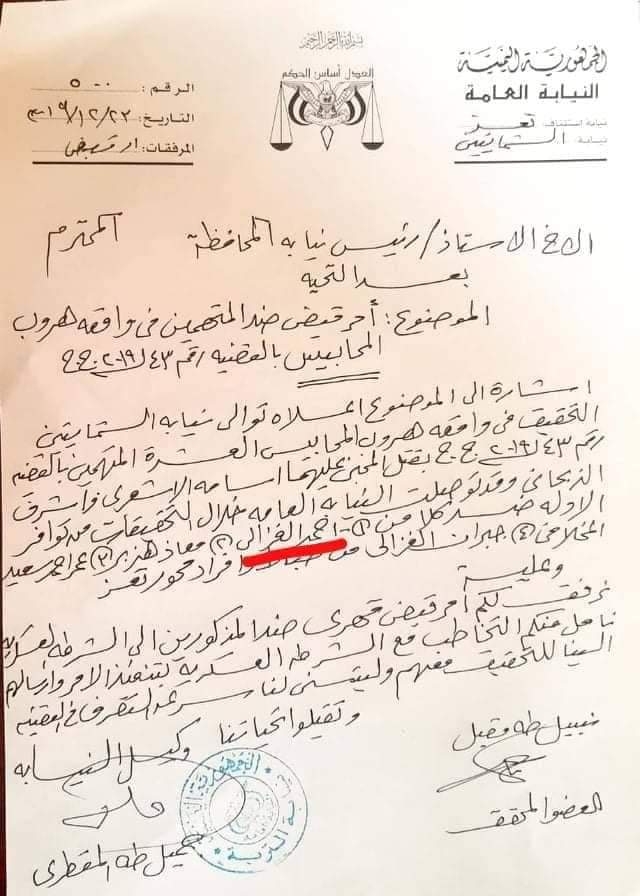 بسم الله الرحمن الرحيم
الجمهورية اليمنية
النيابة العامة
نيابة استئناف تعز
نيابة الشمايتين
العدل أساس الحكم
الرقم: ٥٠٠
التاريخ: ٢٠١٩/١٢/٢٣م
المرفقات:
الاخ الاستاذ/ رئيس نيابه المحافظة المحترم
بعد التحيه
الموضوع: أمر قبض ضد المتهمين في واقعه هروب
المحابيس بالقضيه رقم ٤٣ل٢٠١٩ ج.ج
اشارة الى الموضوع اعلاه توالى نيابه الشمايتين
التحقيق في واقعه هروب المحابيس العشرة المتهمين بالقضيه
رقم ٤٣ل٢٠١٩ ج.ج بقتل المجني عليهما اسامه الاشعري واشرف
الذبحاني وقد توصلت النيابه العامه خلال التحقيقات من توافر
الاوله ضد كلا من ١) احمد الغزالي ٢) معاذ هزبر ٣) عمر احمد سعيد
المخلافي ٤) جبران الغزالي من افراد محور تعز
وعلية
نرفق لكم أمر قبض قهري ضد المذكورين الى الشرطه العسكريه
نامل منكم التخاطب مع الشرطه العسكرية بتنفيذ الامر وارسالهم
الينا للتحقيق معهم وليتسنى لنا سرعه التصرف في القضيه
وتقبلوا تحياتنا
وكيل النيابه
نبيل طه مقبل
العضو المحقق
جميل طه المقطري